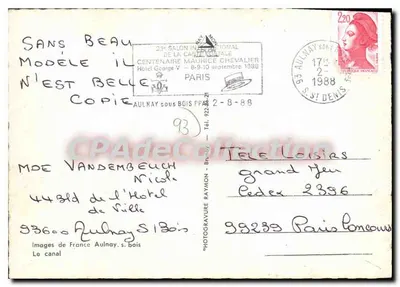 SANS BEAU
MODÈLE IL
N'EST BELLE
COPIE
MDE VANDEMBEUCH
Nicole
44 Bld de l'Hotel
de Ville
93600 Aulnay S/Bois
Images de France Aulnay. s. bois
Le canal
23e SALON
DE LA CARTE POSTALE
CENTENAIRE MAURICE CHEVALIER
Hotel George V - 8-9-10 septembre 1988
PARIS
AULNAY sous BOIS PPAL 2-8-88
93
93 AULNAY
17H
2-8
1988
S. ST DENIS
2,20
"PHOTOGRAVURE RAYMON - Tél. 622.22.21
TELE LOISIRS
grand Jeu
Cedex 2396
99239 Paris Concours
CPADeCollection